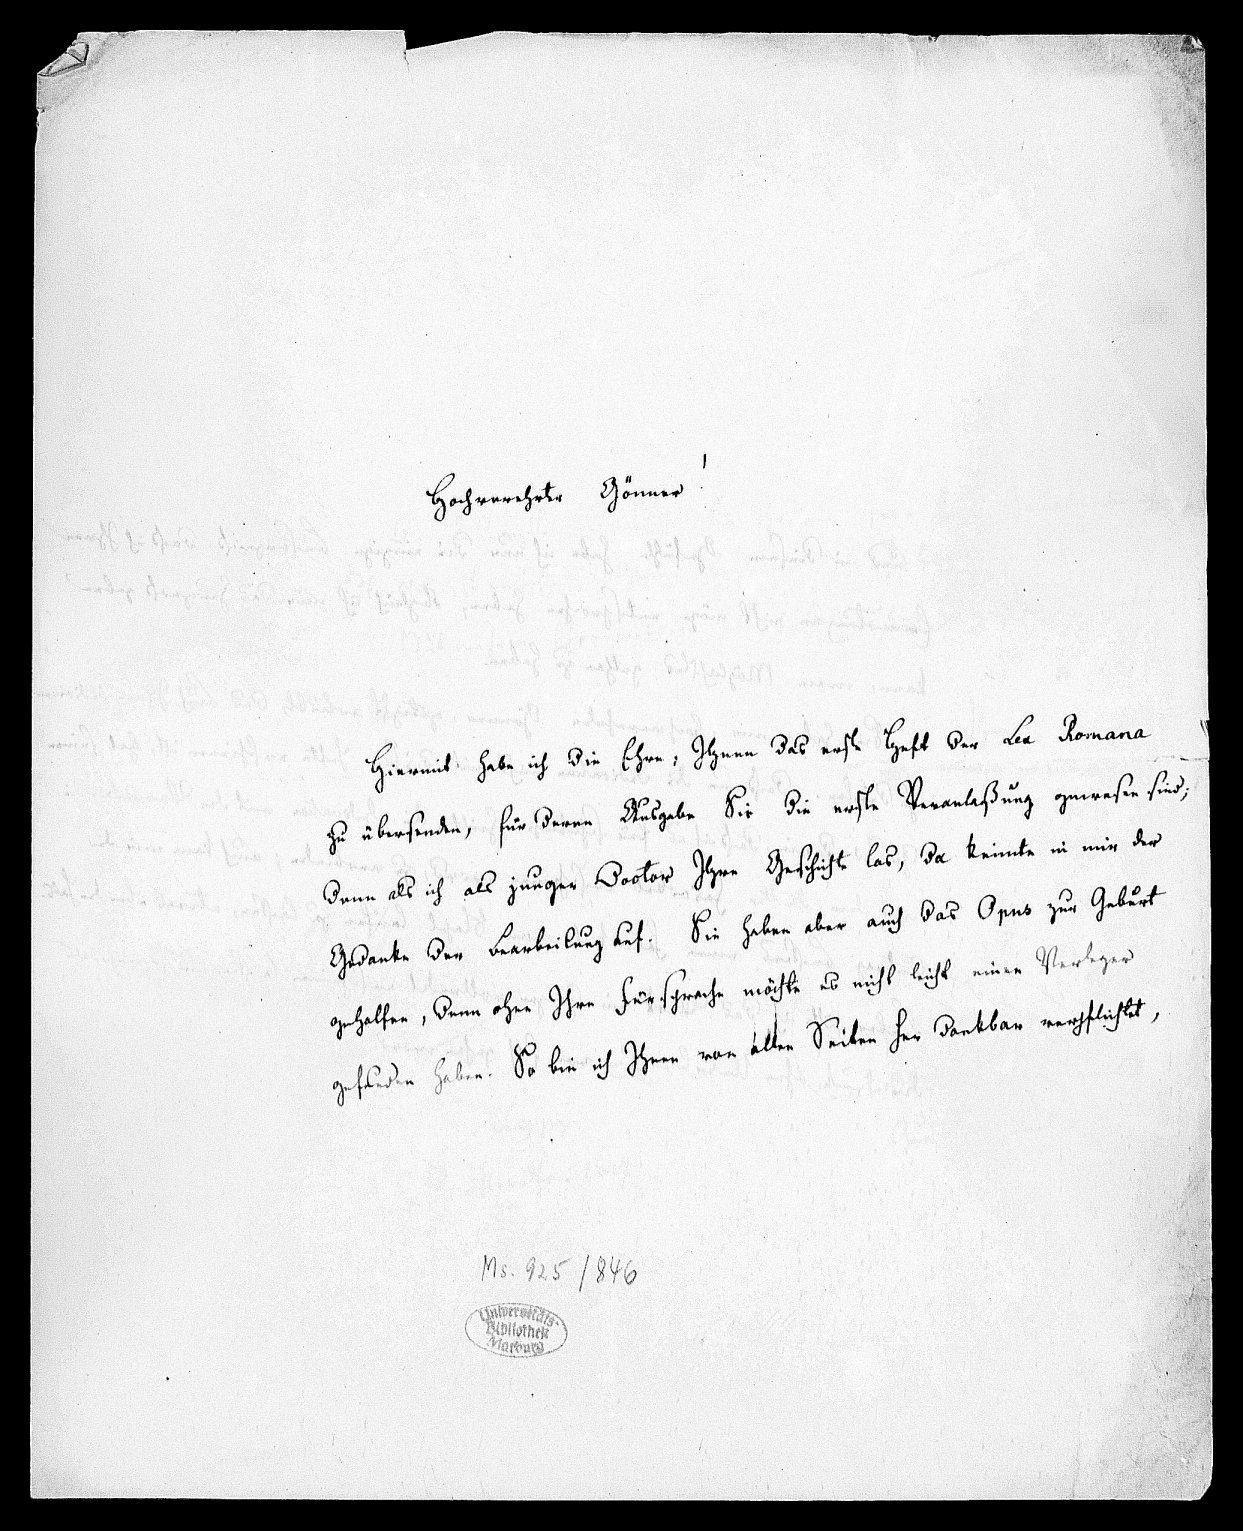 Hochverehrter Gönner!
Hiermit habe ich die Ehre, Ihnen das erste Heft der Lex Romana
zu übersenden, für deren Ausgabe Sie die erste Veranlaßung gewesen sind;
denn als ich als junger Doctor Ihre Geschichte las, da keimte in mir der
Gedanke der Bearbeitung auf. Sie haben aber auch das Opus zur Geburt
geholfen, denn ohne Ihre Fürsprache möchte es nicht leicht einen Verleger
gefunden haben. So bin ich Ihnen von allen Seiten her dankbar verpflichtet,
Ms. 925/846
Universitäts-
Bibliothek
Marburg